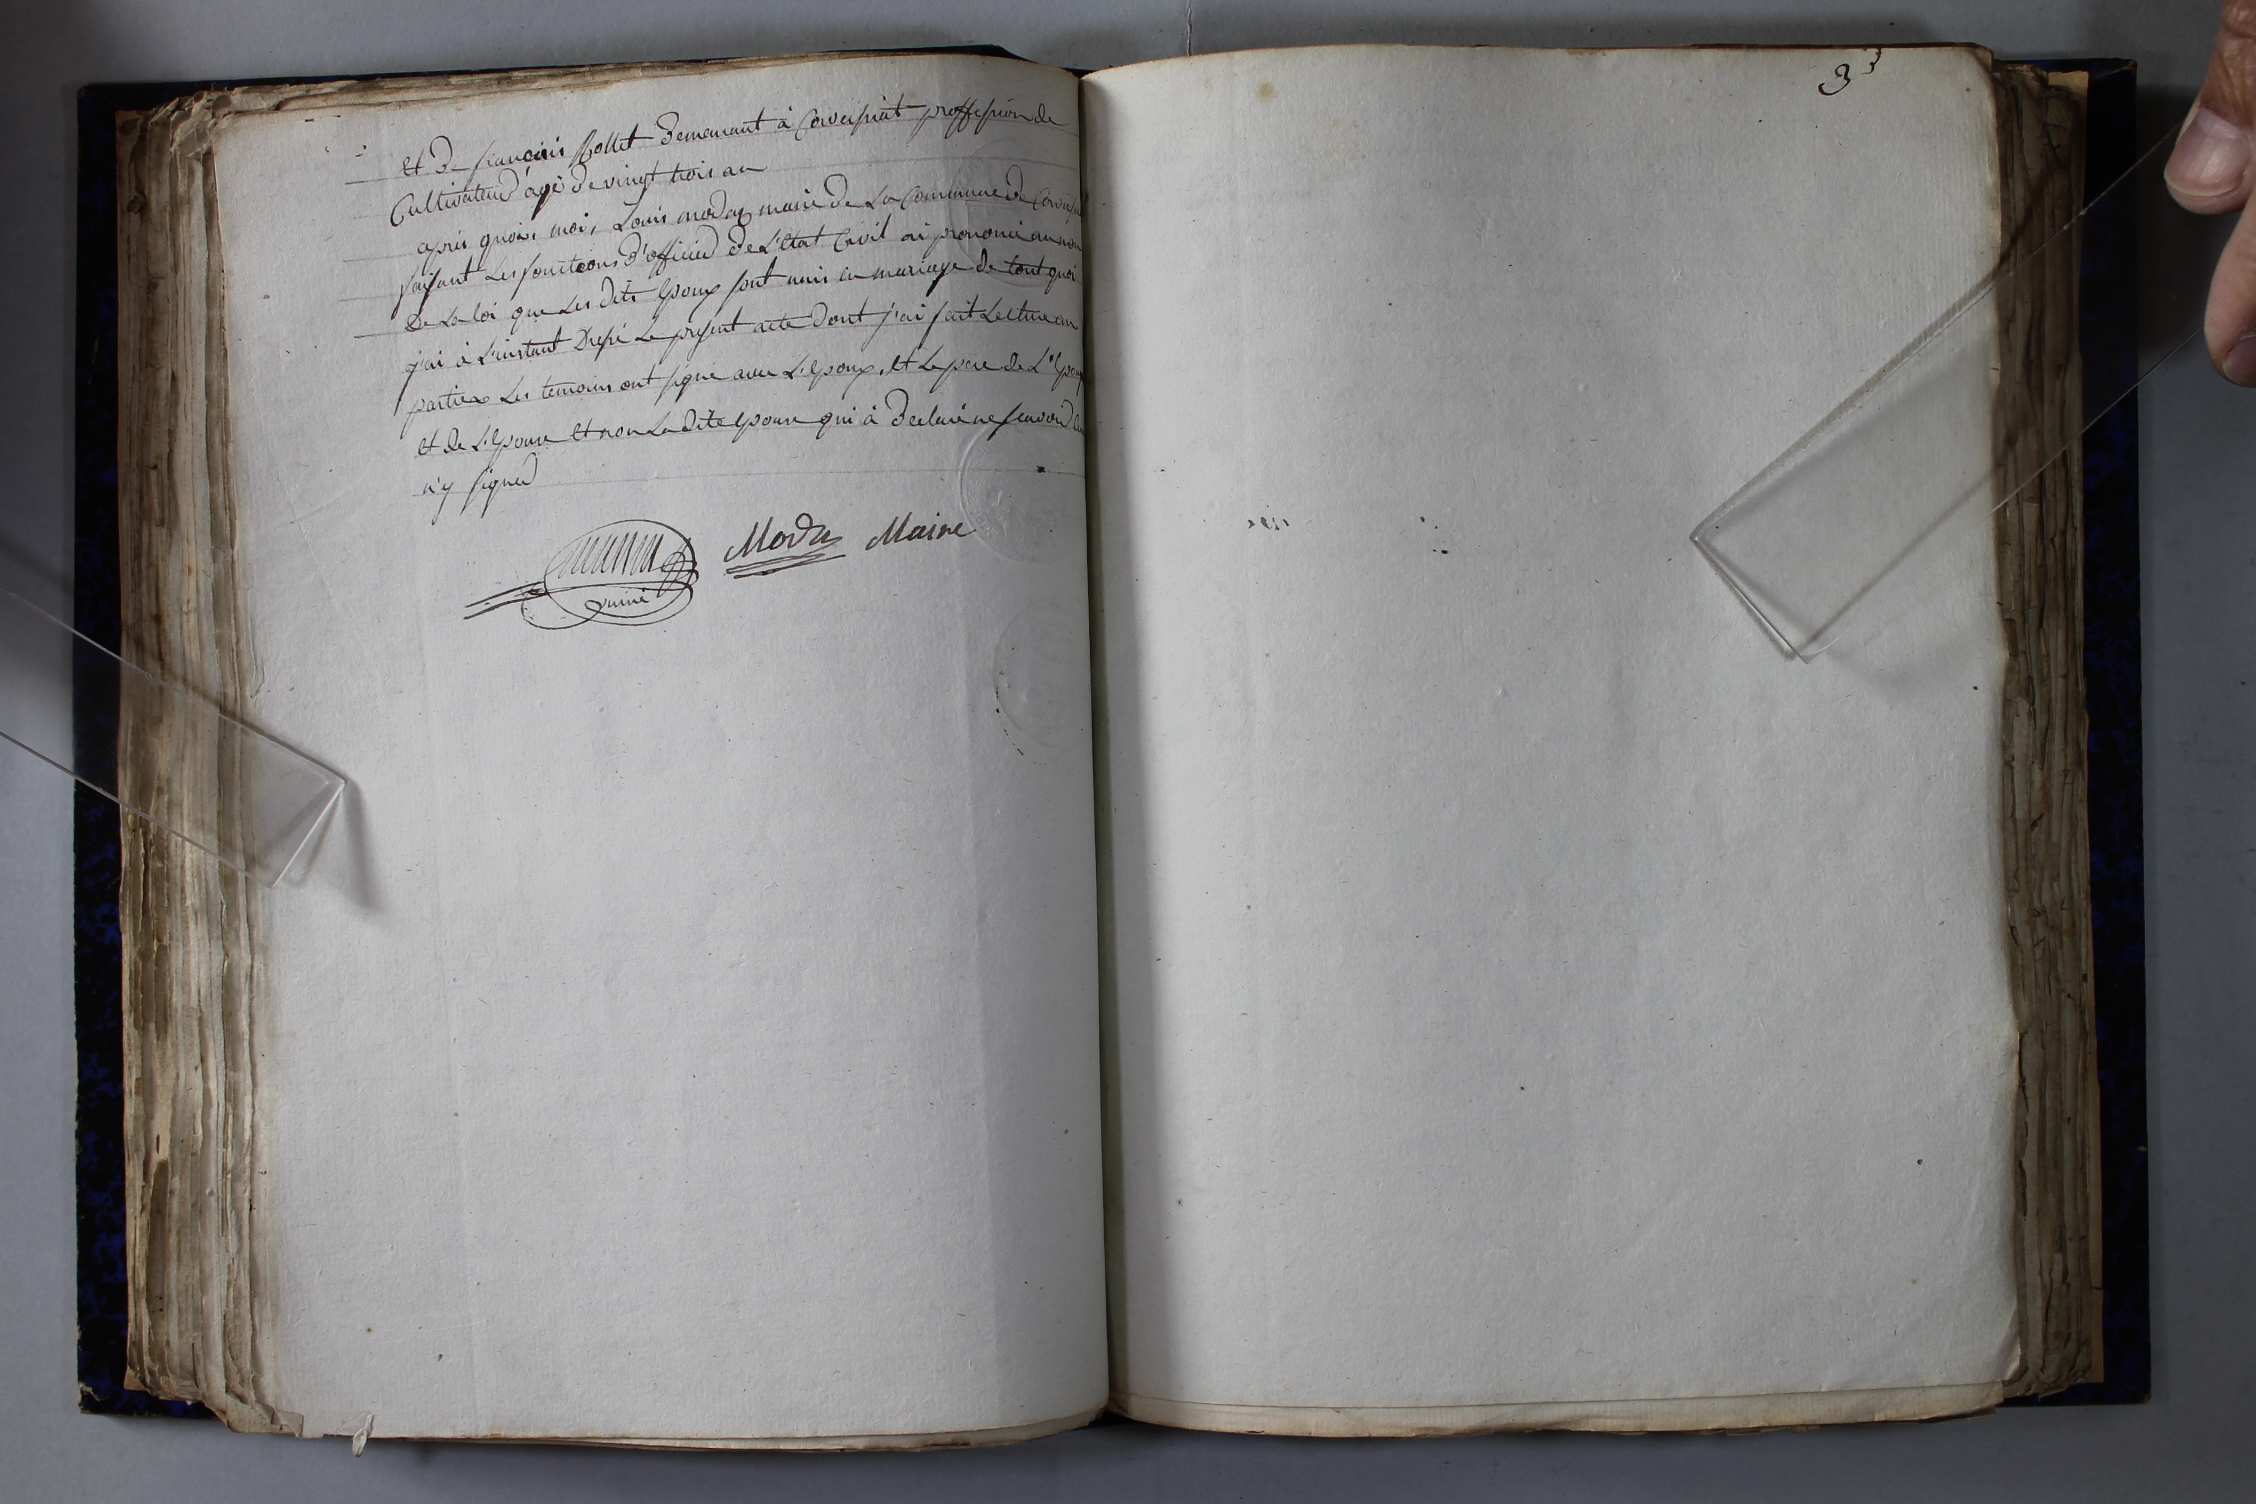 et de françois Rollet demeurant à Corveissiat proffession de
Cultivateur âgé de vingt trois an
après quoi, moi, Louis modas maire de La Commune de Corveissiat
faisant Les fonctions d'officier de L'Etat Civil ai prononcé au nom
De La loi que Les dits Epoux sont unis en mariage de tout quoi
j'ai à L'instant Dressé Le present acte dont j'ai fait Lecture aux
parties Les temoins ont signé avec L'Epoux, et Le pere de L'Epoux
et de L'Epouse et non La dite Epouse qui à Declaré ne scavoir
n'y signer
Modas Maire
33